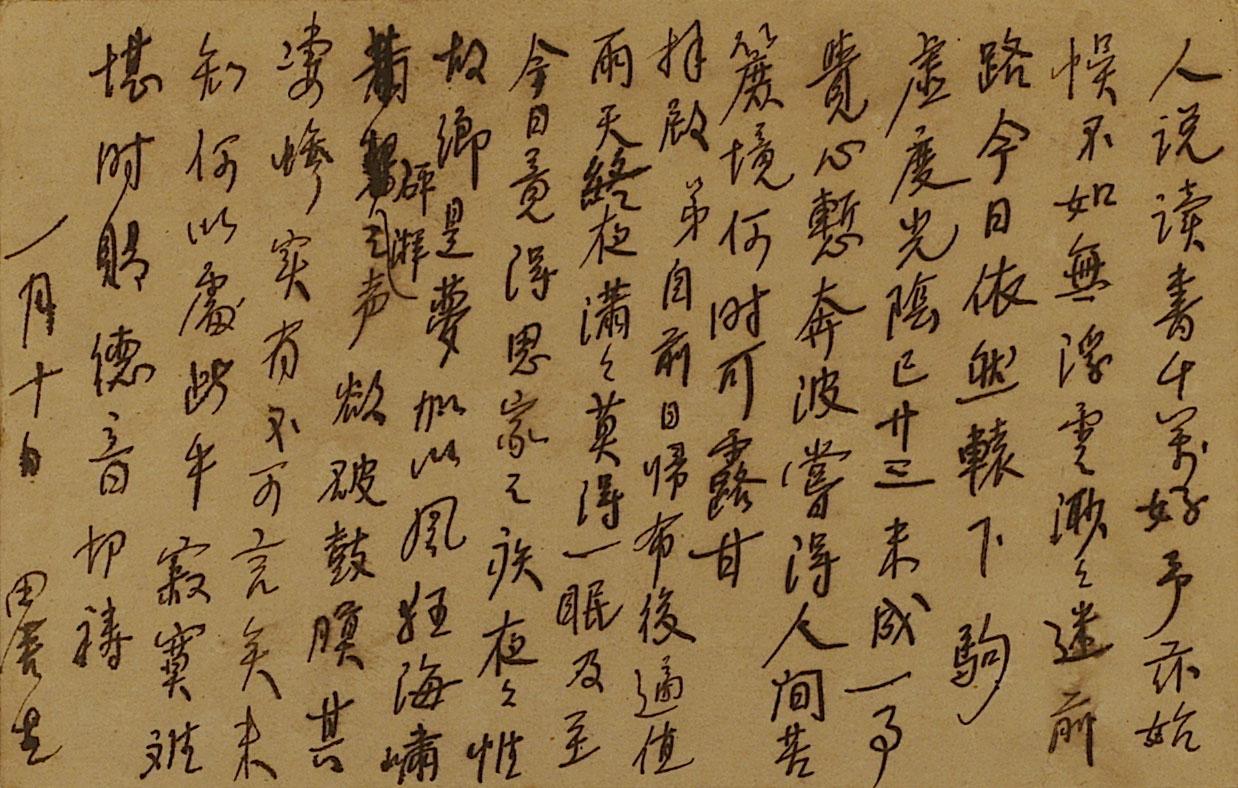 人说读書千萬好予亦始
悮不如無浮雲漸々迷前
路今日依然轅下駒
虚度光陰已廿三未成一事
覺心慙奔波嘗得人间苦
簏境何时可露甘
拝啟弟自前日帰布後適值
雨天終夜瀟々莫得一眠及至
今日竟得思家之疾夜々惟
故鄉是夢加以風狂海嘯
砰湃之声欲破鼓膜其
凄慘实有不可言矣未
知何以處此乎寂寞难
堪时賜德音切禱
一月十日